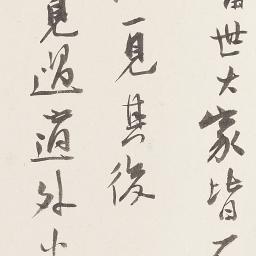 世大家皆
一見其後
見過道外